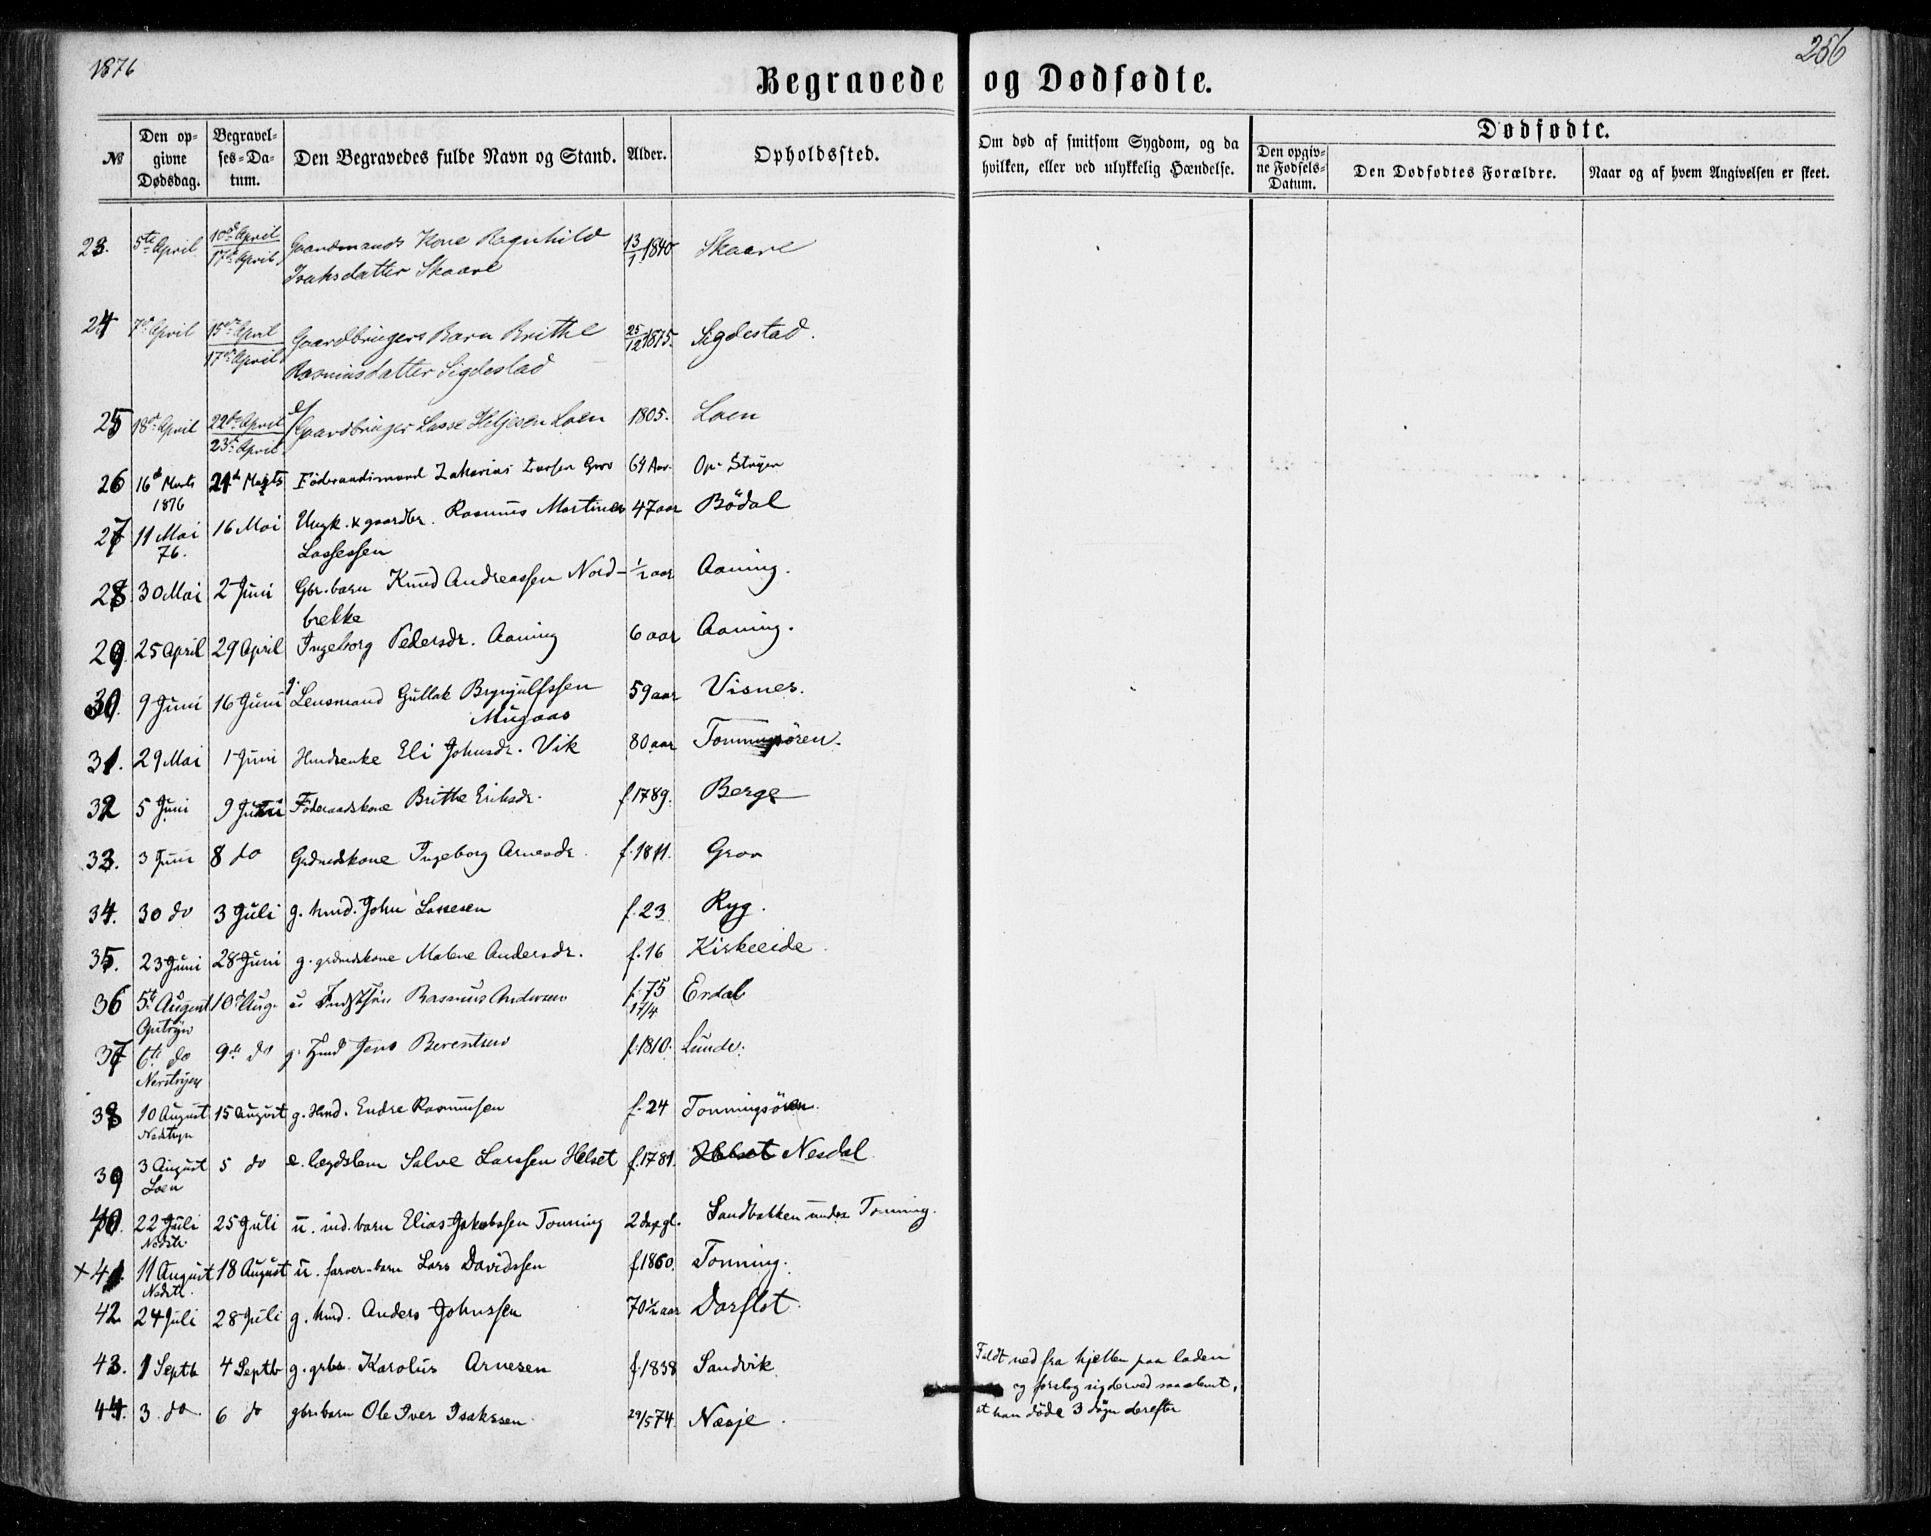 1876
256
Begravede og Dødfødte.
№
Den opgivne Dødsdag.
Begravelses-Datum.
Den Begravedes fulde Navn og Stand.
Alder.
Opholdssted.
Om død af smitsom Sygdom, og da hvilken, eller ved ulykkelig Hændelse.
Dødfødte.
Den opgivne Fødsels-Datum.
Den Dødfødtes Forældre.
Naar og af hvem Angivelsen er skeet.
23. 5te April 10de April Gaardmands Kone Ragnhild 13/1 1840 Skaare
17de April Isaksdatter Skaare
24 7de April 15de April Gaardbrugers Barn Brithe 25/12 1875. Sigdestad.
17de April Rasmusdatter Sigdestad
25 18de April 22de April e/ Gaardbruger Lasse Heljesen Loen 1805. Loen
23de April
26 16de Marts 21de Marts Føderaadsmand Zakarias Larsen Grov 64 Aar. Op. Stryen
1876
27 11 Mai 16 Mai Ungk. & gaardbr. Rasmus Martinus 47 aar Bödal
76. Lassessen
28 30 Mai 2 Juni Gbr. barn Knud Andreassen Nord- 1/2 aar Aaning.
brekke
29. 25 April 29 April Ingeborg Pedersdr. Aaning 6 aar Aaning.
30. 9 Juni 16 Juni g. Lensmand Gullak Brynjulfssen 59 aar Visnes.
Mugaas
31. 29 Mai 1 Juni Hmdsenke Eli Johnsdr. Vik 80 aar Tonningsören.
32 5 Juni 9 Juni Föderaadskone Brithe Eriksdr. f. 1789. Berge
33. 3 Juni 8 do Grdmdskone Ingeborg Arnesdr. f. 1811. Grov
34. 30 do 3 Juli g. hmd. John Lassesen f. 23 Ryg.
35. 23 Juni 28 Juni g. grdmdskone Malene Andersdr. f. 16 Kirkeeide.
36 5te August 10de Aug. u Rasmus Andersen f. 75 Erdal
Opstryn 17/4
37 6te do 9de do g. Hmd Jens Berentsen f. 1810. Lunde.
Nerstryen
38 10 August 15 August g. Hmd. Endre Rasmussen f. 24 Tonningsören.
Nedstryn
39 3 August 5 do e. lægdslem Salve Larssen Helset f. 1781. Helset Nesdal.
Loen
40. 22 Juli 25 Juli u. ind. barn Elias Jakobssen Tonning 2 dage gl. Sandbakken under Tonning.
Nedstr.
x 41. 11 August 18 August u. farver-barn Lars Davidssen f. 1860. Tonning.
Nedstr.
42. 24 Juli 28 Juli g. hmd. Anders Johnssen 70 1/2 aar Dorflot.
43. 1 Septb 4 Septb g. grbr. Karolus Arnesen f. 1838 Sandvik.
Faldt ned fra hjellen paa laden
og forslog sig derved saa slemt,
at han döde 3 dögn derefter
44. 3 do 6 do gbr. barn Ole Iver Isakssen 29/5 74. Næsje.